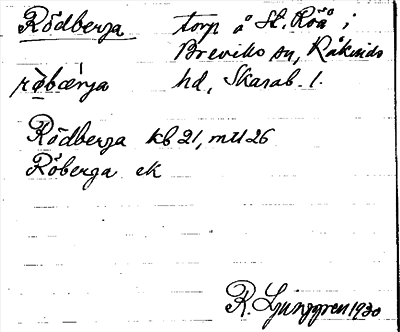 Rödberga torp å St. Röå i
Breviks sn, Råkinds
hd, Skarab. l.
Rödberga kb 21, mtl 26
Röberga ek
R. Ljunggren 1930